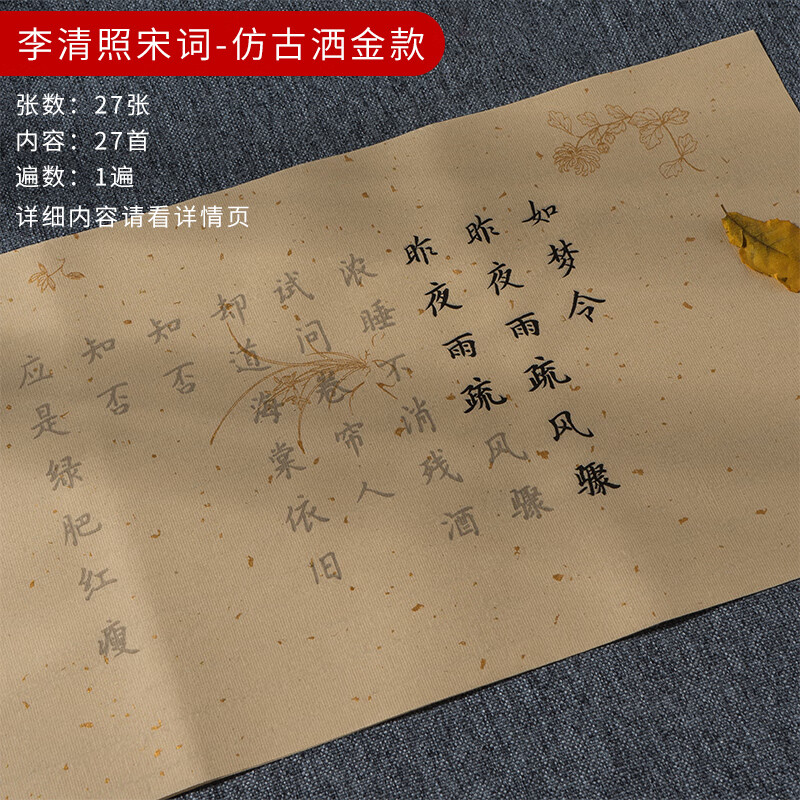 李清照宋词-仿古洒金款
张数：27张
内容：27首
遍数：1遍
详细内容请看详情页
如梦令
昨夜雨疏风骤
昨夜雨疏风骤
浓睡不消残酒
试问卷帘人
却道海棠依旧
知否
知否
应是绿肥红瘦